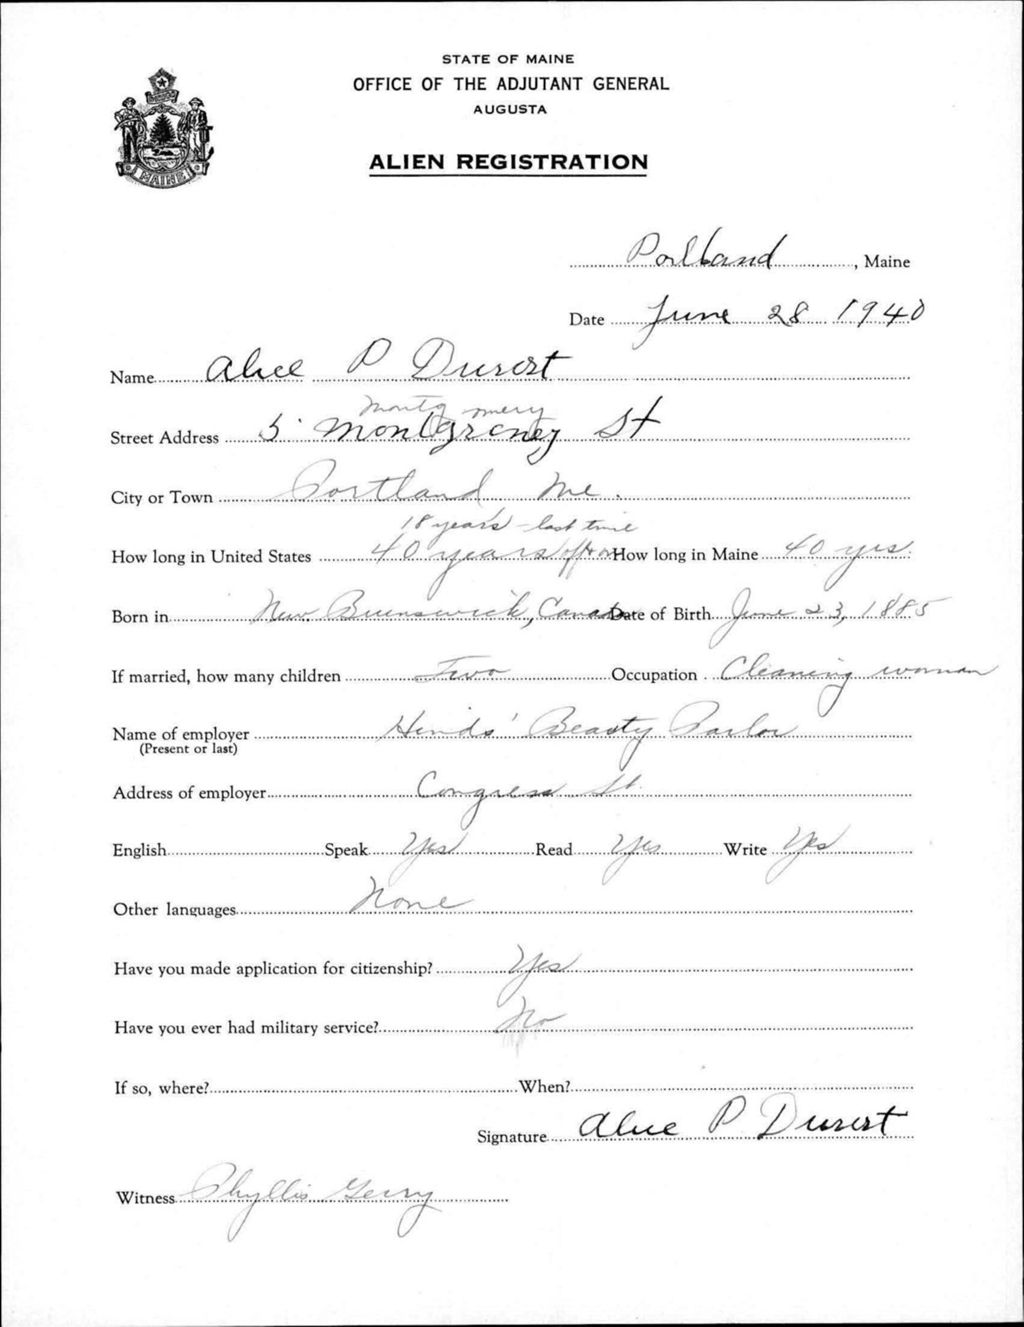 STATE OF MAINE
OFFICE OF THE ADJUTANT GENERAL
AUGUSTA
ALIEN REGISTRATION
MAINE
Portland, Maine
Date June 28 1940
Name Alice P
Montgomery
Street Address 5 St
City or Town Portland Me.
18 years - last time
How long in United States 40 years off + on How long in Maine 40 yrs.
Born in New Brunswick, Canada Date of Birth June 23, 1885
If married, how many children Two Occupation Cleaning woman
Name of employer Hinds' Beauty Parlor
(Present or last)
Address of employer Congress St.
English Speak Yes Read Yes Write Yes
Other languages None
Have you made application for citizenship? Yes
Have you ever had military service? No
If so, where? When?
Signature Alice P
Witness Phyllis Gerry